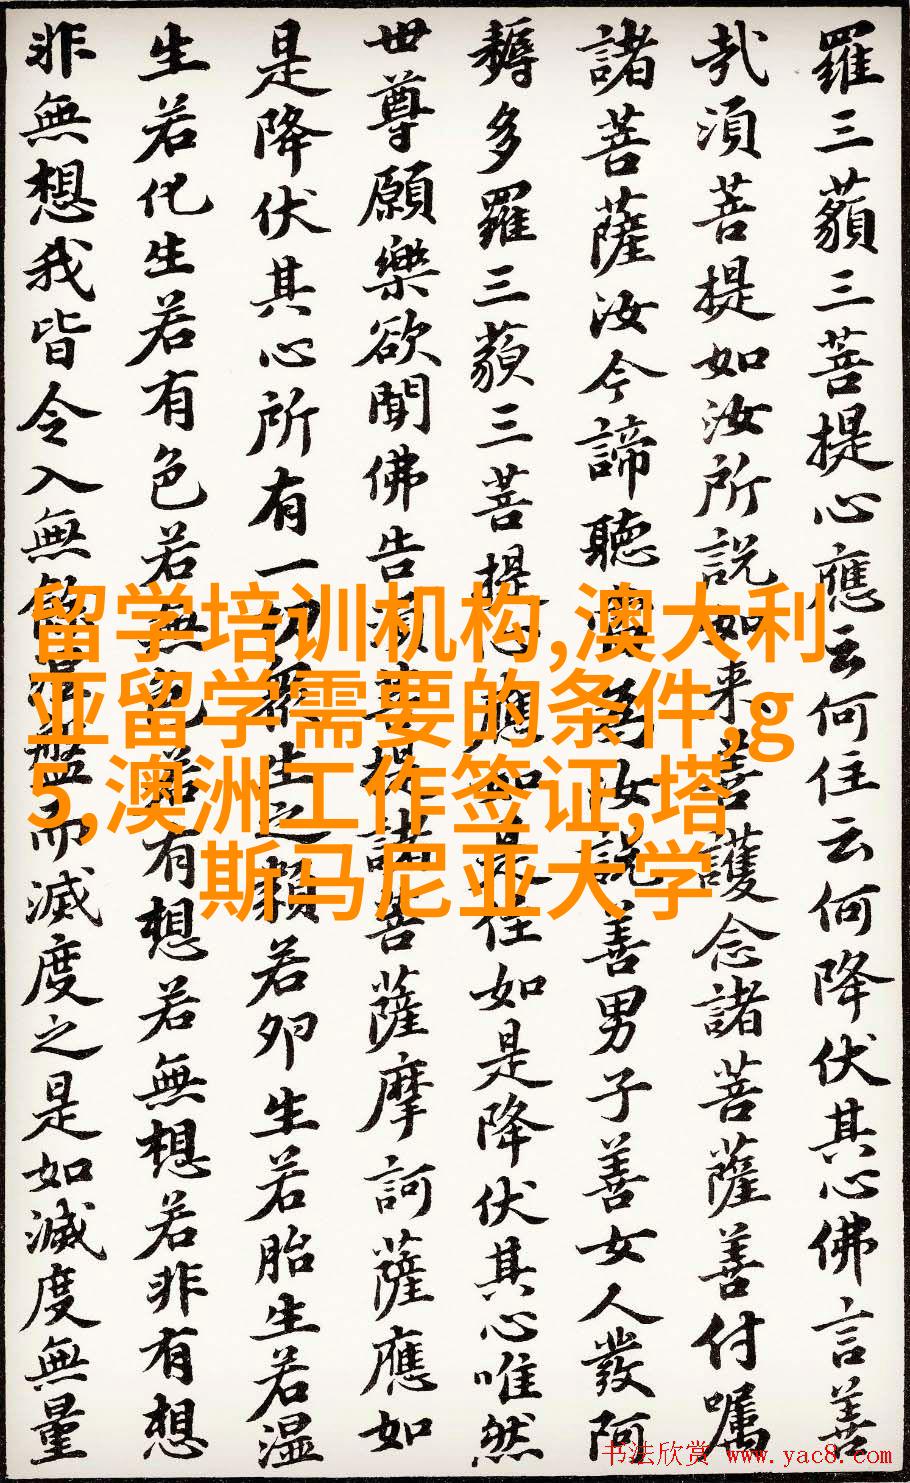 羅三藐三菩提心應云何住云何降伏其心佛言善
哉須菩提如汝所説如来善護念諸菩薩善付嘱
諸菩薩汝今諦聽當為汝説善男子善女人發阿
耨多羅三藐三菩提心應如是住如是降伏其心唯然
世尊願樂欲聞佛告須菩提諸菩薩摩訶薩應如
是降伏其心所有一切衆生之類若卵生若胎生若温
生若化生若有色若無色若有想若無想若非有想
非無想我皆令入無餘涅槃而滅度之是如滅度無量
留学培训机构,澳大利
亚留学需要的条件,g
5,澳洲工作签证,塔
斯马尼亚大学
书法欣赏 www.yac8.com